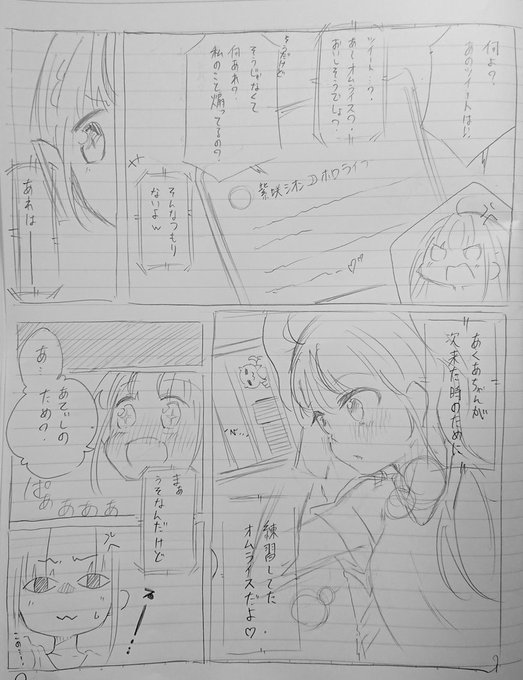 何よ?
あのツイートはぁ!
ツイート…?
あーオムライス?
おいしそうでしょ?
そうだけど
そうじゃなくて
何あれ?
私のこと煽ってるの?
紫咲シオン
ホロライブ
そんなつもり
ないよw
あれはー
あくあちゃんが
次来た時のために
練習してた
オムライスだよ♡
あ…
あてぃしの
ため?
ぱぁぁぁぁ
まぁ
うそなんだけど